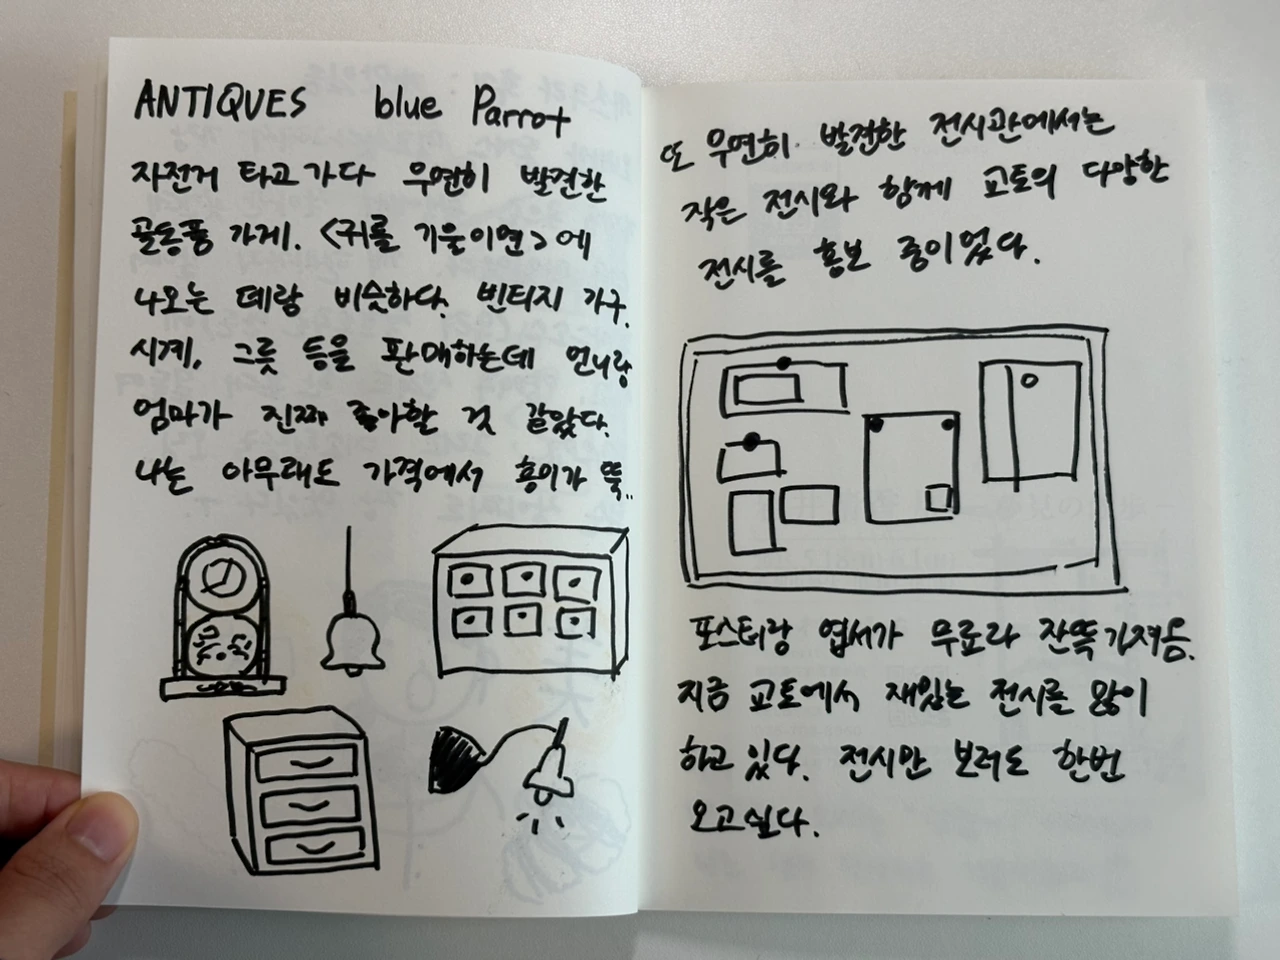 ANTIQUES blue Parrot
자전거 타고 가다 우연히 발견한
골동품 가게. <귀를 기울이면>에
나오는 데랑 비슷하다. 빈티지 가구,
시계, 그릇 등을 판매하는데 언니랑
엄마가 진짜 좋아할 것 같았다.
나는 아무래도 가격에서 흥미가 뚝..
똑.딱
또 우연히 발견한 전시관에서는
작은 전시와 함께 교토의 다양한
전시를 홍보 중이었다.
포스터랑 엽서가 무료라 잔뜩 가져옴.
지금 교토에서 재밌는 전시를 많이
하고 있다. 전시만 보러도 한번
오고싶다.